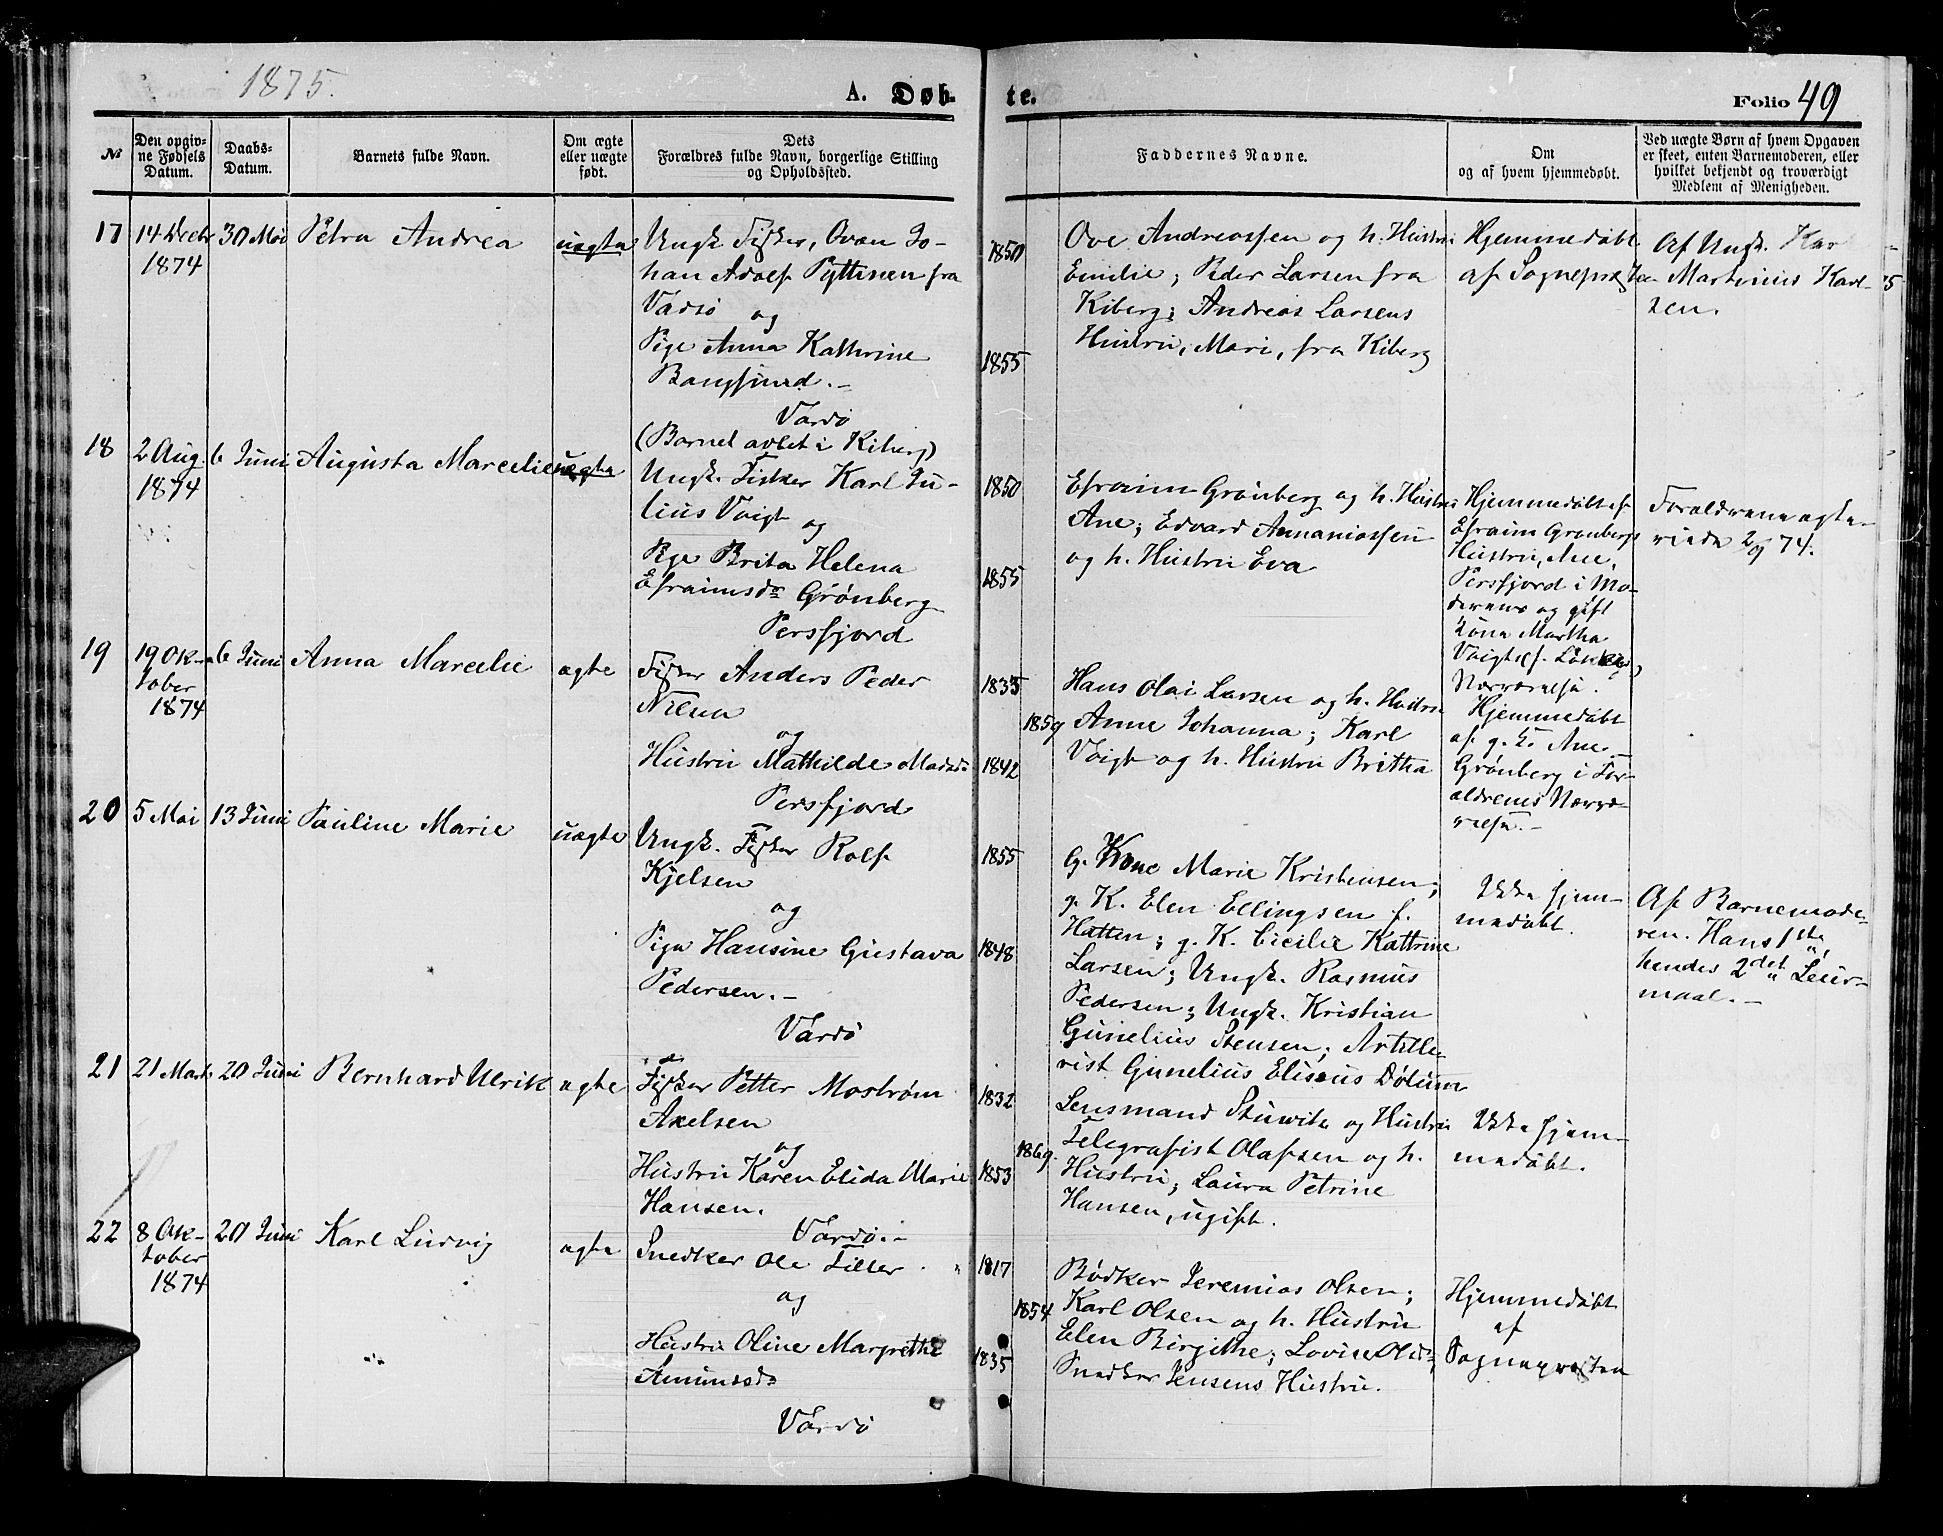 1875.
A. Døb-
te.
Folio 49
№
Den opgiv-
ne Fødsels
Datum.
Daabs-
Datum.
Barnets fulde Navn.
Om ægte
eller uægte
født.
Dets
Forældres fulde Navn, borgerlige Stilling
og Opholdssted.
Faddernes Navne.
Om
og af hvem hjemmedøbt.
Ved uægte Børn af hvem Opgaven
er skeet, enten Barnemoderen, eller
hvilket bekjendt og troværdigt
Medlem af Menigheden.
17
14 Decbr
1874
30 Mai
Petra Andrea
uægte
Ungk. Fisker, Ovan Jo-
han Adolf Pyttinen fra
Vadsø og
Pige Anna Kathrine
Bangsund.-
Vardø
(Barnet avlet i Kiberg)
1850
1855
Ove Andreassen og h. Hustru
Emilie; Peder Larsen fra
Kiberg; Andreas Larsens
Hustru, Mari, fra Kiberg
Hjemmedøbt
af Sognepræsten
Af Ungk. Karl
Martinius Karl-
sen.
18
2 Aug
1874
6 Juni
Augusta Marcelie
uægte
Ungk. Fisker Karl Ju-
lius Voigt og
Pige Brita Helena
Efraimsdr Grønberg
Persfjord
1850
1855
Efraim Grønberg og h. Hustru
Ane; Edvard Annaniassen
og h. Hustru Eva
Hjemmedøbt af
Efraim Grønbergs
Hustru, Ane,
Persfjord i Mo-
derens og gift
Kone Martha
Voigts
Nærværelse.
Forældrene ægte-
viede 2/9 74.
19
19 Ok-
tober
1874
6 Juni
Anna Marcelie
ægte
Fisker Anders Peder
Niena
og
Hustru Mathilde Madsdr
Persfjord
1835
1859
1842
Hans Olai Larsen og h. Hustru
Anne Johanna; Karl
Voigt og h. Hustru Britha
Hjemmedøbt
af g. K. Ane
Grønberg i For-
ældrenes Nærvæ-
relse.-
20
5 Mai
13 Juni
Pauline Marie
uægte
Ungk. Fisker Rolf
Kjelsen
og
Pige Hansine Gustava
Pedersen.-
Vardø
1855
1848
G. Kone Marie Kristensen;
g. K. Elen Ellingsen f.
Hatten; g. K. Cicilie Kattrine
Larsen; Ungk. Rasmus
Pedersen; Ungk. Kristian
Gunelius Stensen; Artille-
rist Gunelius Eliseus Dølum
Ikke hjem-
medøbt.
Af Barnemode-
ren. Hans 1ste,
hendes 2det Leier-
maal.-
21
21 Marts
20 Juni
Bernhard Ulrik
ægte
Fisker Petter Mostrøm
Axelsen
og
Hustru Karen Elida Marie
Hansen.
Vardø.-
1832
1869.
1853
Lensmand Stuwitz og Hustru
Telegrafist Olafsen og h.
Hustru; Laura Petrine
Hansen, ugift.
Ikke hjem-
medøbt.
22
8 Ok-
tober
1874
20 Juni
Karl Ludvig
ægte
Snedker Ole Tiller
og
Hustru Oline Margrethe
Amundsdr
Vardø
1817
1854
1835
Bødker Jeremias Olsen;
Karl Olsen og h. Hustru
Elen Birgithe; Lovise Olsdr,
Snedker Jensens Hustru.
Hjemmedøbt
af
Sognepræsten